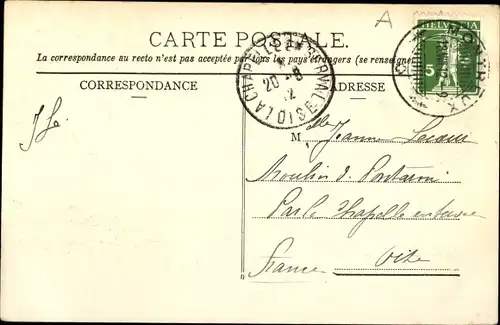 A
CARTE POSTALE.
La correspondance au recto n'est pas acceptée par tous les pays étrangers (se renseigner
CORRESPONDANCE
ADRESSE
HELVETIA
5
MONTREUX
LA CHAPELLE EN SERVAL
20 -8
12
OISE
M elle Jeanne
Moulin de
Par la Chapelle en
Oise
France